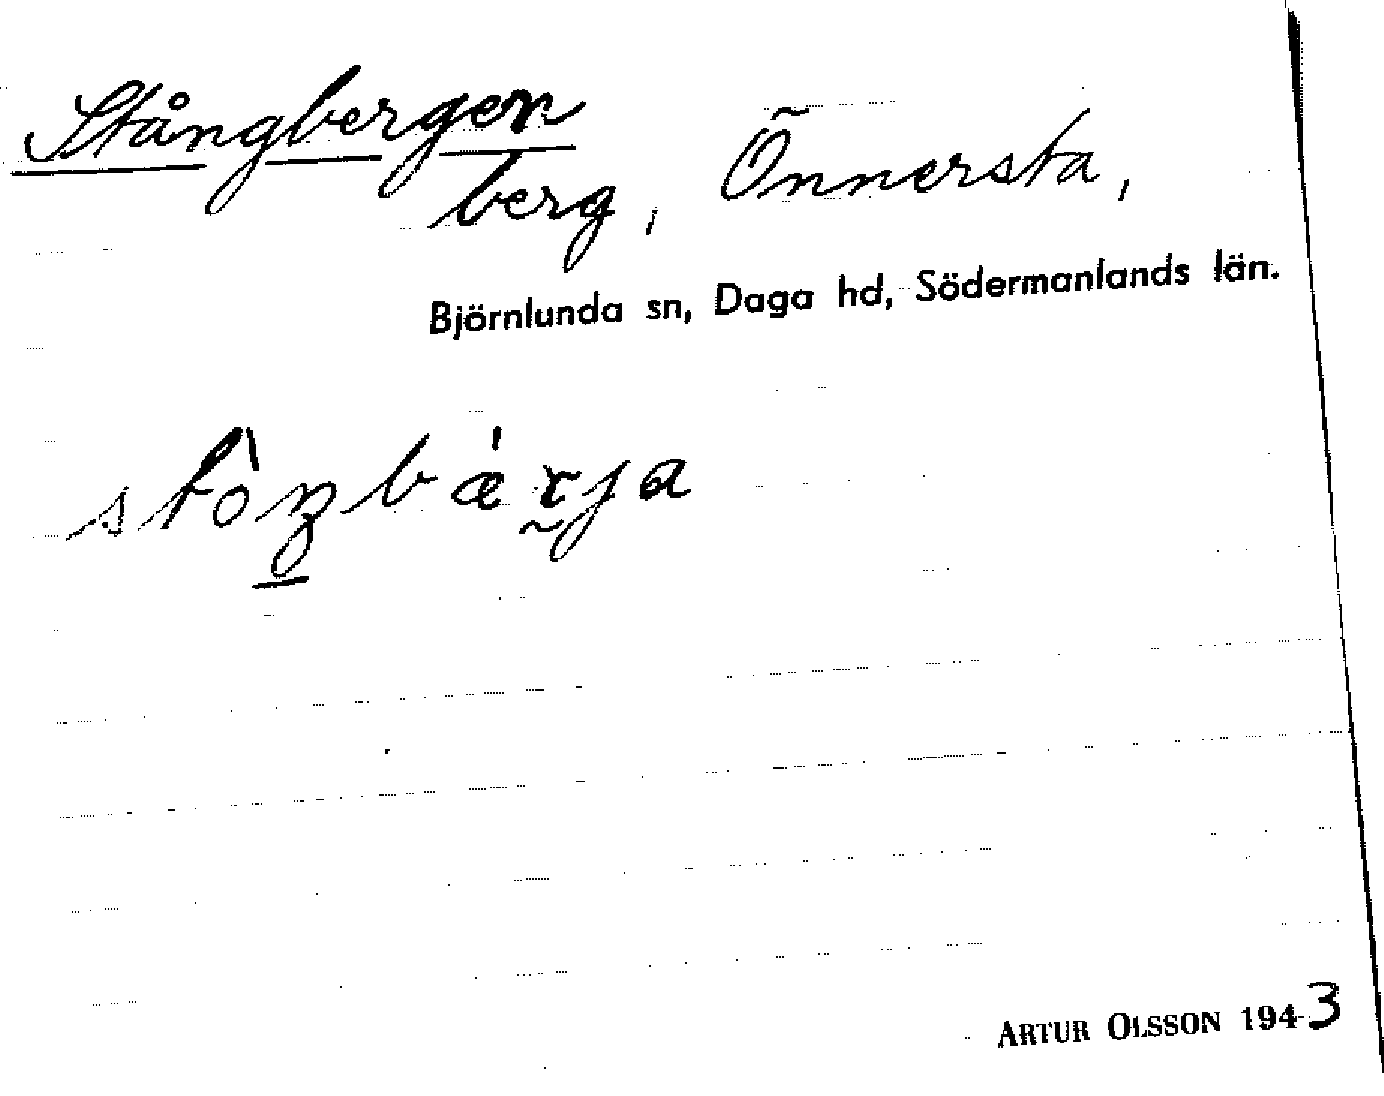 Stångbergen
berg, Önnersta,
Björnlunda sn, Daga hd, Södermanlands län.
ARTUR OLSSON 1943